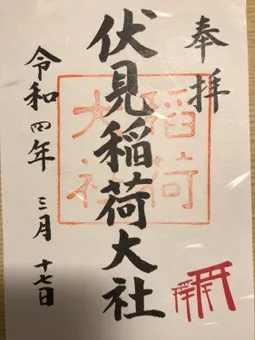 奉拝
伏見稲荷大社
稲荷
大社
令和四年 三月 十七日